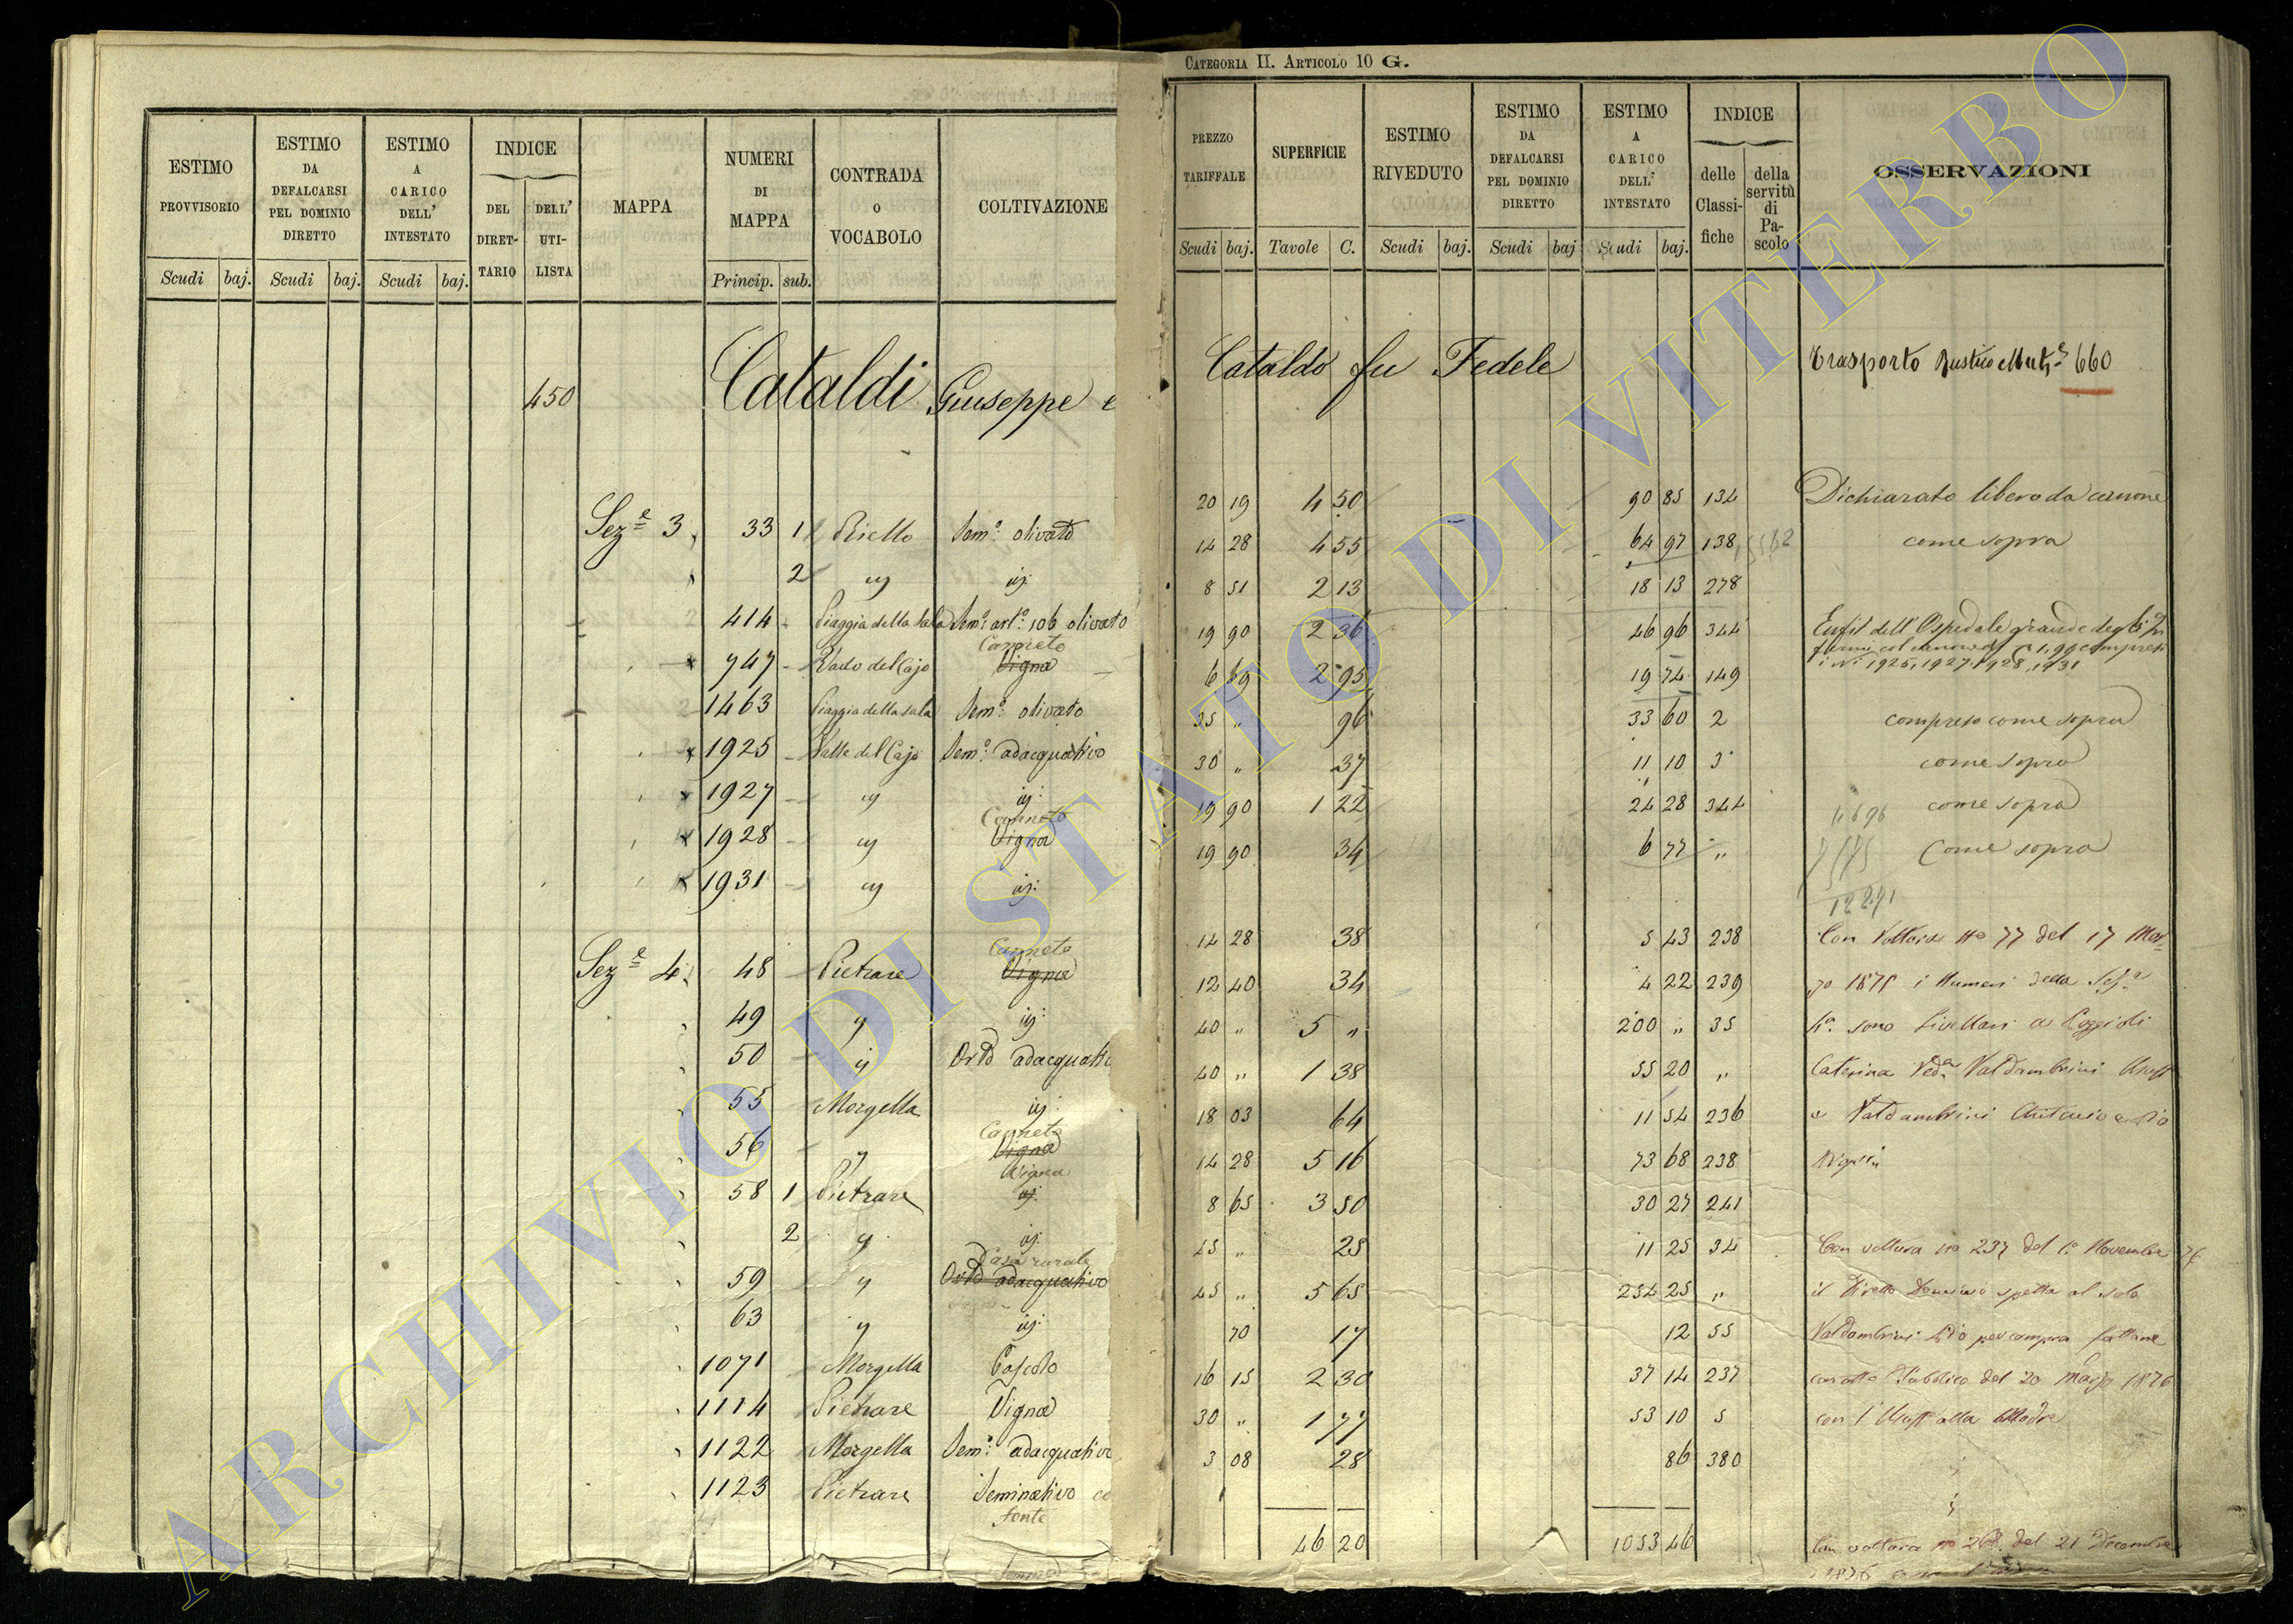 CATEGORIA II. ARTICOLO 10 G.
ESTIMO PROVVISORIO
ESTIMO DA DEFALCARSI PEL DOMINIO DIRETTO
ESTIMO A CARICO DELL' INTESTATO
INDICE
DEL DIRET-TARIO
DELL' UTI-LISTA
MAPPA
NUMERI DI MAPPA
CONTRADA O VOCABOLO
COLTIVAZIONE
Scudi baj. Scudi baj. Scudi baj. Princip. sub.
PREZZO TARIFFALE
SUPERFICIE
ESTIMO RIVEDUTO
ESTIMO DA DEFALCARSI PEL DOMINIO DIRETTO
ESTIMO A CARICO DELL' INTESTATO
INDICE
delle Classi-fiche
della servitù di Pa-scolo
OSSERVAZIONI
Scudi baj. Tavole C. Scudi baj. Scudi baj Scudi baj.
450 Cataldi Giuseppe e Cataldo fu Fedele Trasporto Rustico 660
Sez.e 3 33 1 Riello Sem.o olivato 20 19 4 50 90 85 134 Dichiarato libero da canone
2 14 28 4 55 64 97 138 come sopra
414 Piaggia della Sala Sem.o art.o sob olivato 8 51 2 13 18 13 278
Canneto
747 Valle del Cajo Vigna 19 90 2 36 46 96 344 Enfit dell'Ospedale grande degli In
fermi col canone di 1,99 compresi
i N.i 1925, 1927, 1928, 1931
1463 Piaggia della Sala Sem.o olivato 6 69 2 95 19 74 149
1925 Valle del Cajo Sem.o adacquativo 35 " 96 33 60 2 compreso come sopra
1927 30 " 37 11 10 3 come sopra
Canneto
1928 Vigna 19 90 1 22 24 28 344 come sopra
1931 19 90 34 6 77 " Come sopra
Canneto
Sez.e 4 48 Pietrare Vigna 14 28 38 5 43 238 Con Voltura No 77 del 17 Mar
49 12 40 34 4 22 239 zo 1875 i Numeri della Sez.a
50 Orto adacquativo 40 " 5 " 200 " 35 4.a sono Livellari a Poggioli
55 Morgella 40 " 1 38 55 20 " Caterina Ved.a Valdambrini Usuff
Canneto
56 Vigna 18 03 64 11 54 236 e Valdambrini Antonio e Pio
Vigna
58 1 Pietrare 14 28 5 16 73 68 238
2 8 65 3 50 30 27 241
Casa rurale
59 Orto adacquativo 45 " 25 11 25 34 Con voltura no 237 del 1.o Novembre 76
63 45 " 5 65 254 25 " il Diretto Dominio spetta al solo
1071 Morgella Pascolo 70 17 12 55 Valdambrini Pio per compra fattane
1114 Pietrare Vigna 16 15 2 30 37 14 237 con atto Pubblico del 20 Marzo 1876
1122 Morgella Sem.o adacquativo 30 " 1 77 53 10 5 con l'Usuff alla Madre
1123 Pietrare Seminativo co 3 08 28 86 380
fonte
46 20 1053 46
Con voltura no 268 del 21 Decembre
1876
ARCHIVIO DI STATO DI VITERBO